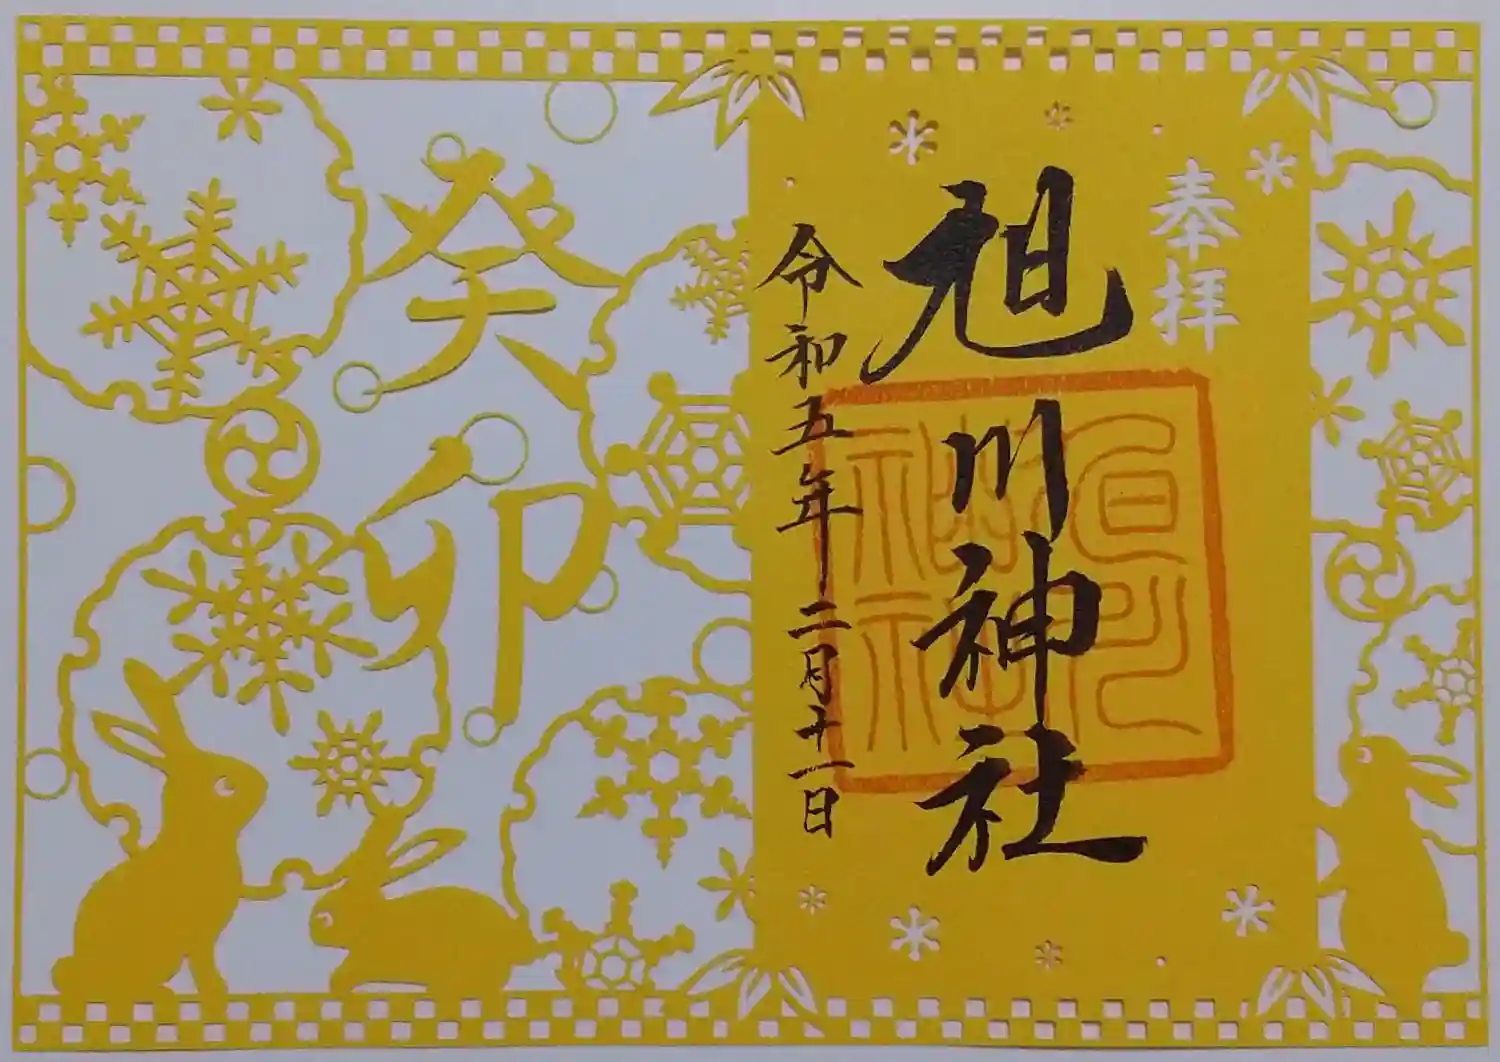 奉拝
旭川神社
令和五年二月十一日
癸卯
旭川神社